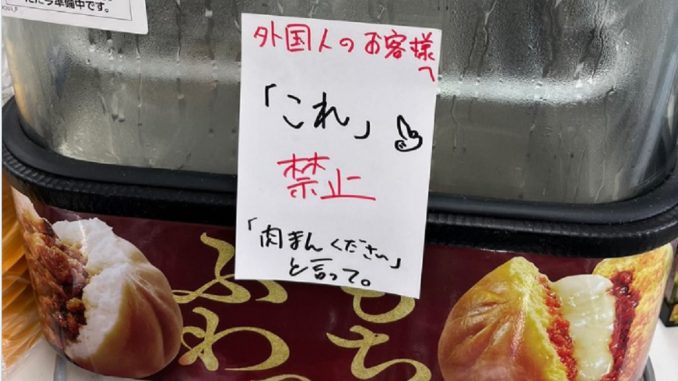 ただ今準備中です。
外国人のお客様へ
「これ」
禁止
「肉まんください」
と言って。
もち
ふわっ